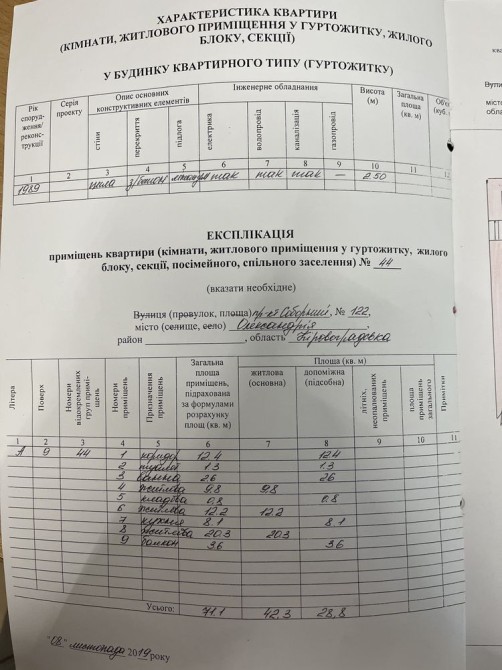 ХАРАКТЕРИСТИКА КВАРТИРИ
(КІМНАТИ, ЖИТЛОВОГО ПРИМІЩЕННЯ У ГУРТОЖИТКУ, ЖИЛОГО
БЛОКУ, СЕКЦІЇ)
У БУДИНКУ КВАРТИРНОГО ТИПУ (ГУРТОЖИТКУ)
Рік споруд-ження/ реконс-трукції Серія проекту Опис основних конструктивних елементів Інженерне обладнання Висота (м) Загальна площа (кв. м)
стіни перекриття підлога електрика водопровід каналізація газопровід
1 2 3 4 5 6 7 8 9 10 11
1989 з/бетон так так так — 2.50
ЕКСПЛІКАЦІЯ
приміщень квартири (кімнати, житлового приміщення у гуртожитку, жилого
блоку, секції, посімейного, спільного заселення) № 44
(вказати необхідне)
Вулиця (провулок, площа) пр-кт Соборний, № 122,
місто (селище, село) Олександрія,
район , область Кіровоградська
Літера Поверх Номери відокремлених груп примі-щень Номери приміщень Призначення приміщень Загальна площа приміщень, підрахована за формулами розрахунку площ (кв. м) Площа (кв. м)
житлова (основна) допоміжна (підсобна) літніх, неопалюваних приміщень площа приміщень загального Примітки
1 2 3 4 5 6 7 8 9 10 11
А 9 44 1 коридор 12.4 12.4
2 туалет 1.3 1.3
3 ванна 2.6 2.6
4 житлова 9.8 9.8
5 кладова 0.8 0.8
6 житлова 12.2 12.2
7 кухня 8.1 8.1
8 житлова 20.3 20.3
9 балкон 3.6 3.6
Усього: 71.1 42.3 28.8
"08" листопада 2019 року